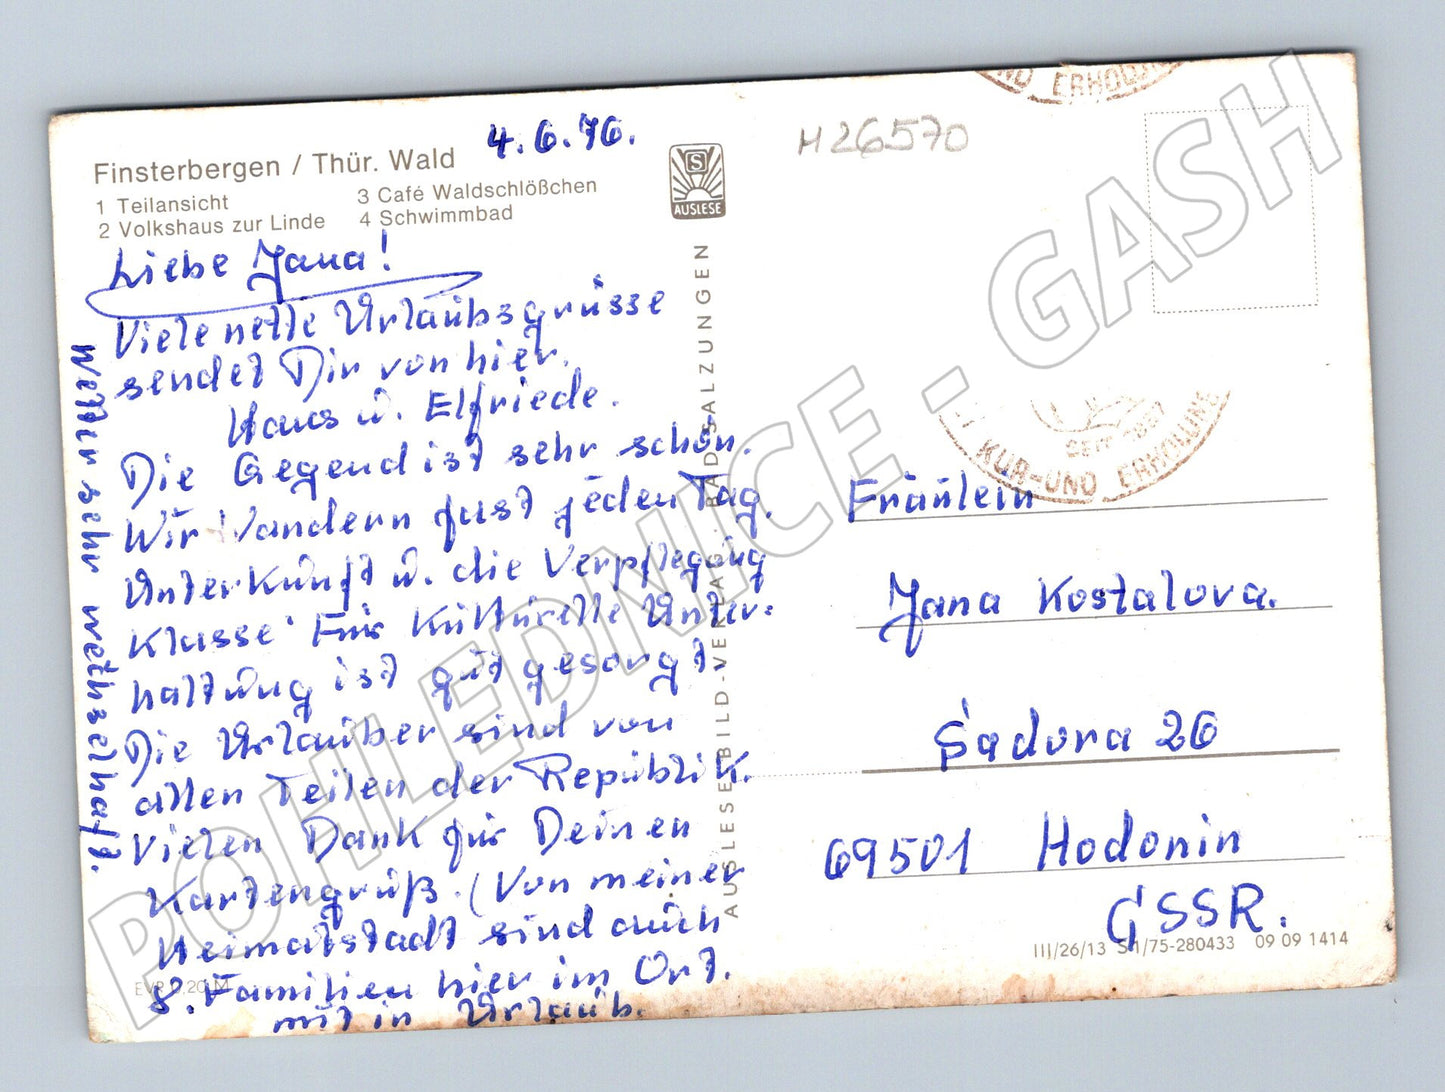 Finsterbergen / Thür. Wald
4.6.76.
1 Teilansicht
2 Volkshaus zur Linde
3 Café Waldschlößchen
4 Schwimmbad
S
AUSLESE
H 26570
UND ERHOLUNG
Liebe Jana!
Viele nette Urlaubsgrüsse
sendet Dir von hier.
Hans u. Elfriede.
Die Gegend ist sehr schön.
Wir Wandern fast jeden Tag.
Unterkunft u. die Verpflegung
Klasse. Für Kulturelle Unter-
haltung ist gut gesorgt.
Die Urlauber sind von
allen Teilen der Republik.
Vielen Dank für Deinen
Kartengruß. (Von meiner
Heimatstadt sind auch
8. Familien hier im Ort.
mit in Urlaub.
Wetter sehr wechselhaft.
AUSLESE-BILD-VERLAG · BAD SALZUNGEN
KUR-UND ERHOLUNG
Fräulein
Jana Kostalova.
Šadova 26
69501 Hodonin
ČSSR.
EVP 0,20 M
III/26/13 S1/75-280433 09 09 1414
POHLEDNICE - GASH